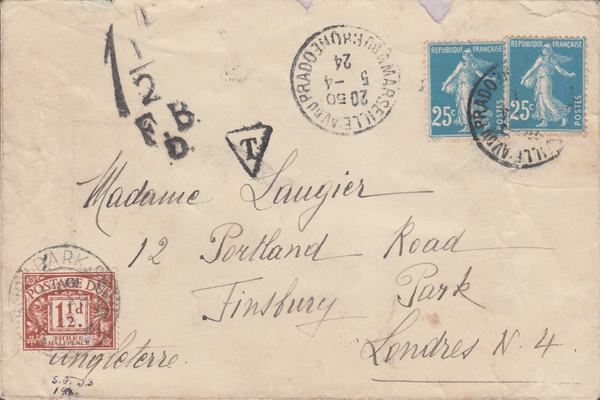 1 1/2
F.B.
D.
MARSEILLE AV. DU PRADO
20 50
5 - 4
24
RÉPUBLIQUE FRANÇAISE
25c
POSTES
RÉPUBLIQUE FRANÇAISE
25c
POSTES
T
Madame Laugier
12 Portland Road
Finsbury Park
Londres N. 4.
Angleterre.
PARK
POSTAGE DUE
1½d.
THREE
HALFPENCE
S.G. D3